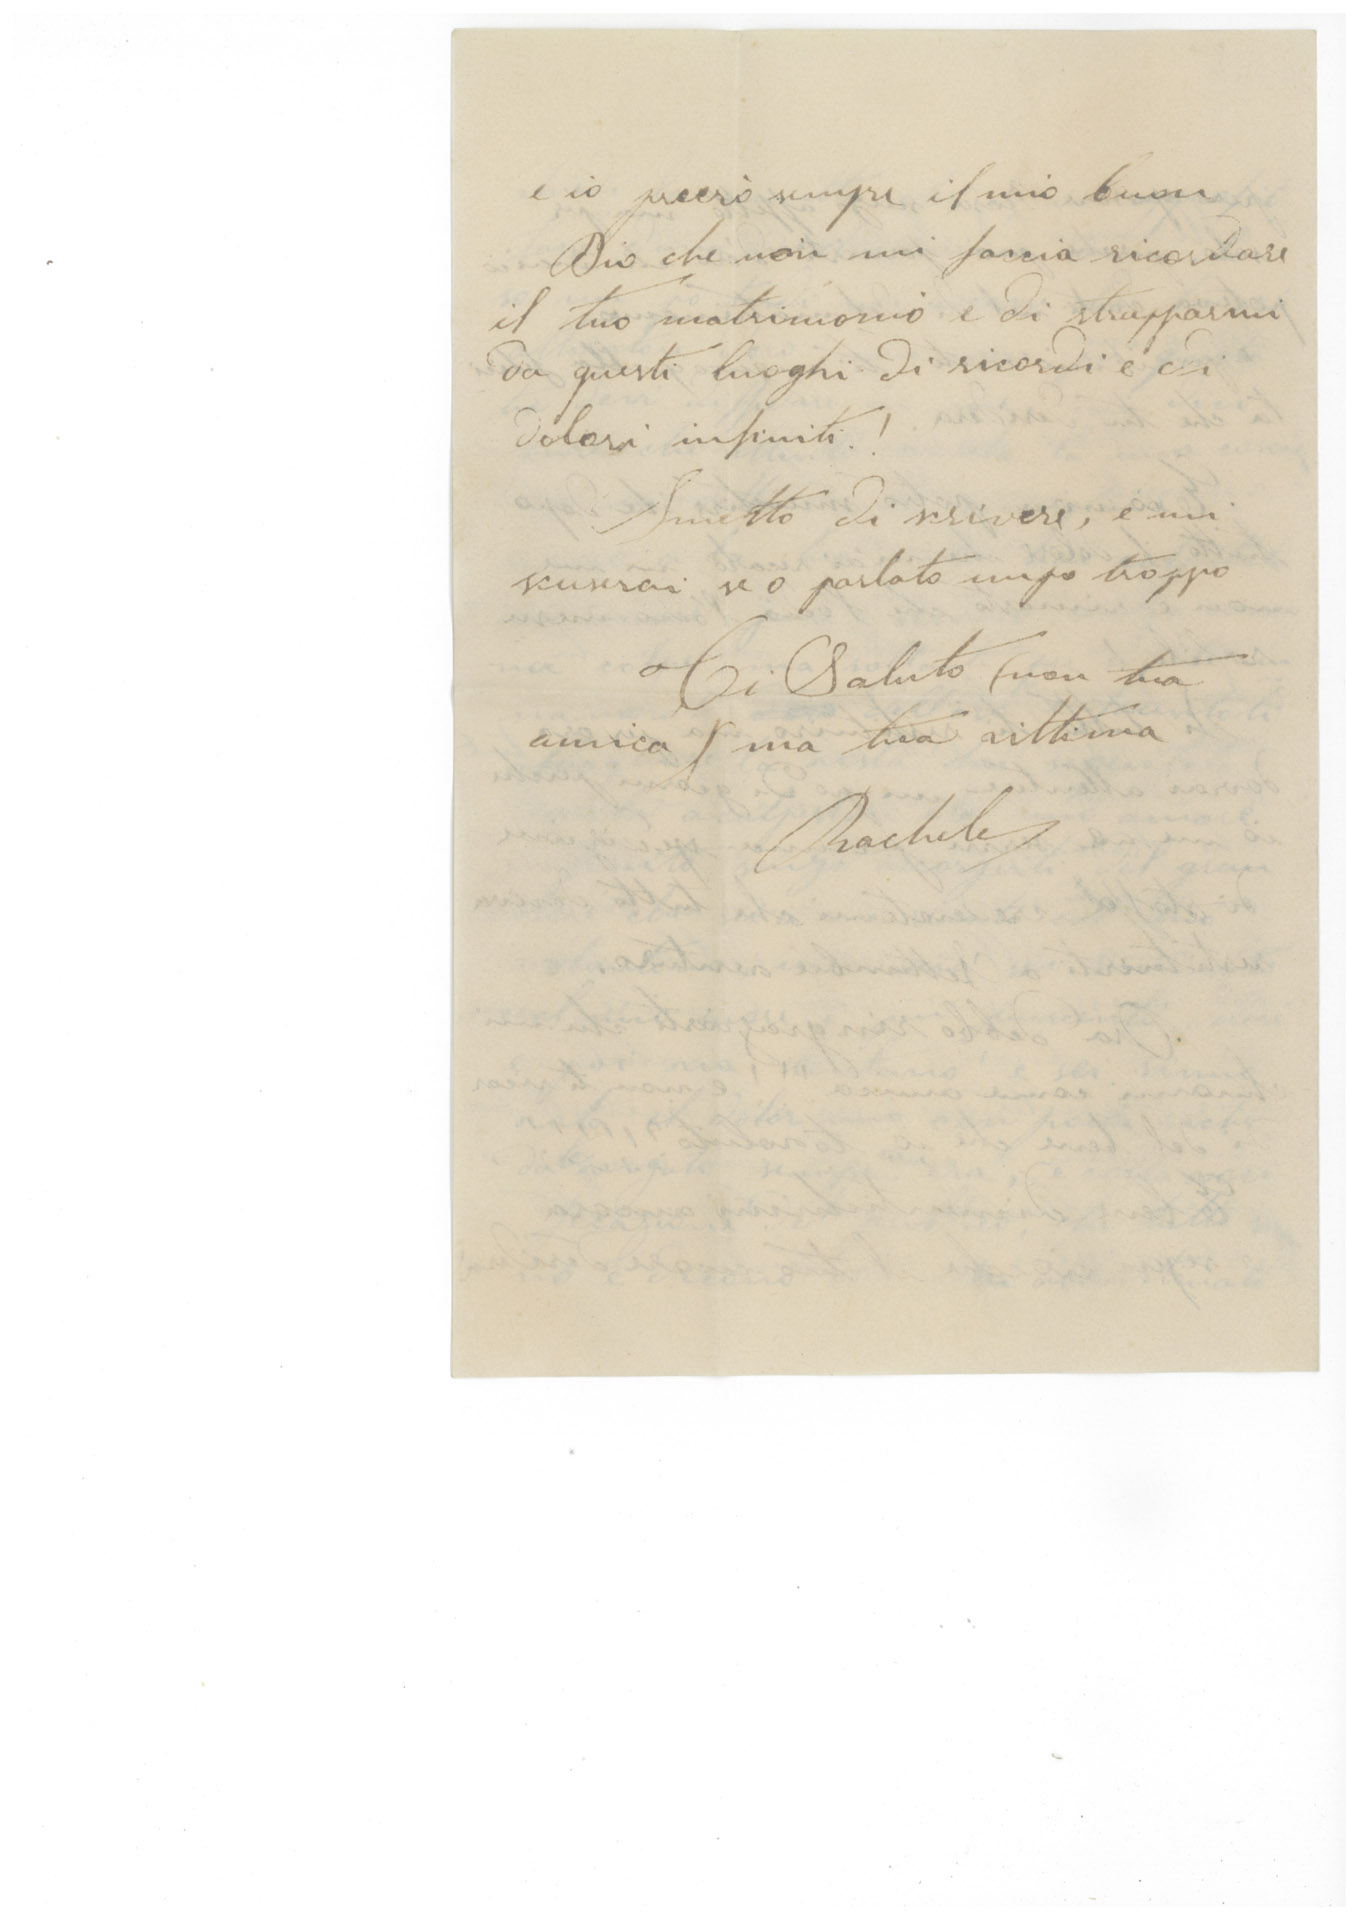 e io precrò sempre il mio buon
Dio che non mi faccia ricordare
il tuo matrimonio e di strapparmi
da questi luoghi di ricordi e di
dolori infiniti!
Smetto di scrivere, e mi
scuserai se o parlato unpo troppo
Ti Saluto (non tua
amica) ma tua vittima
Rachele